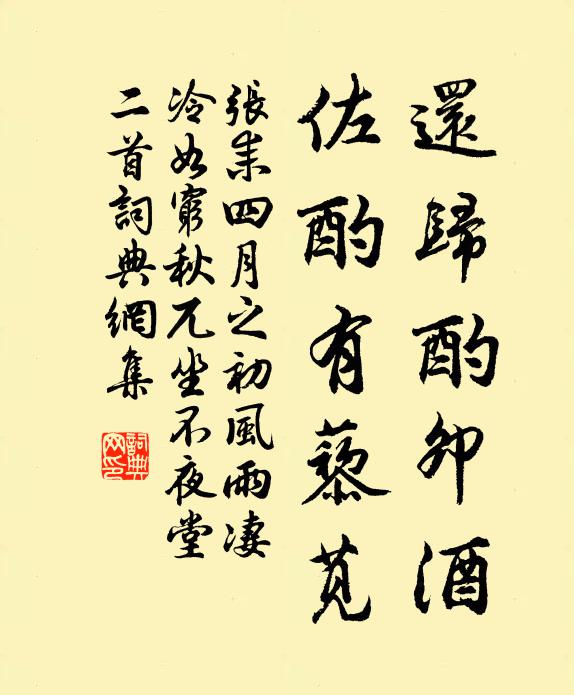 還歸酌卯酒
佐酌有藜莧
張耒四月之初風雨凄
冷如窮秋兀坐不夜堂
二首詞典網集
詞典
网印